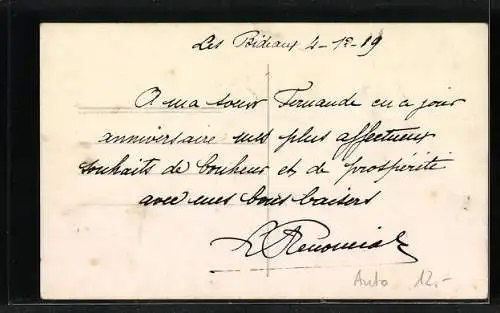 Les Bideaux 4-1e-19
A ma soeur Fernande en ce jour
anniversaire mes plus affectueux
souhaits de bonheur et de prospérité
avec mes bons baisers
Auto 12.-